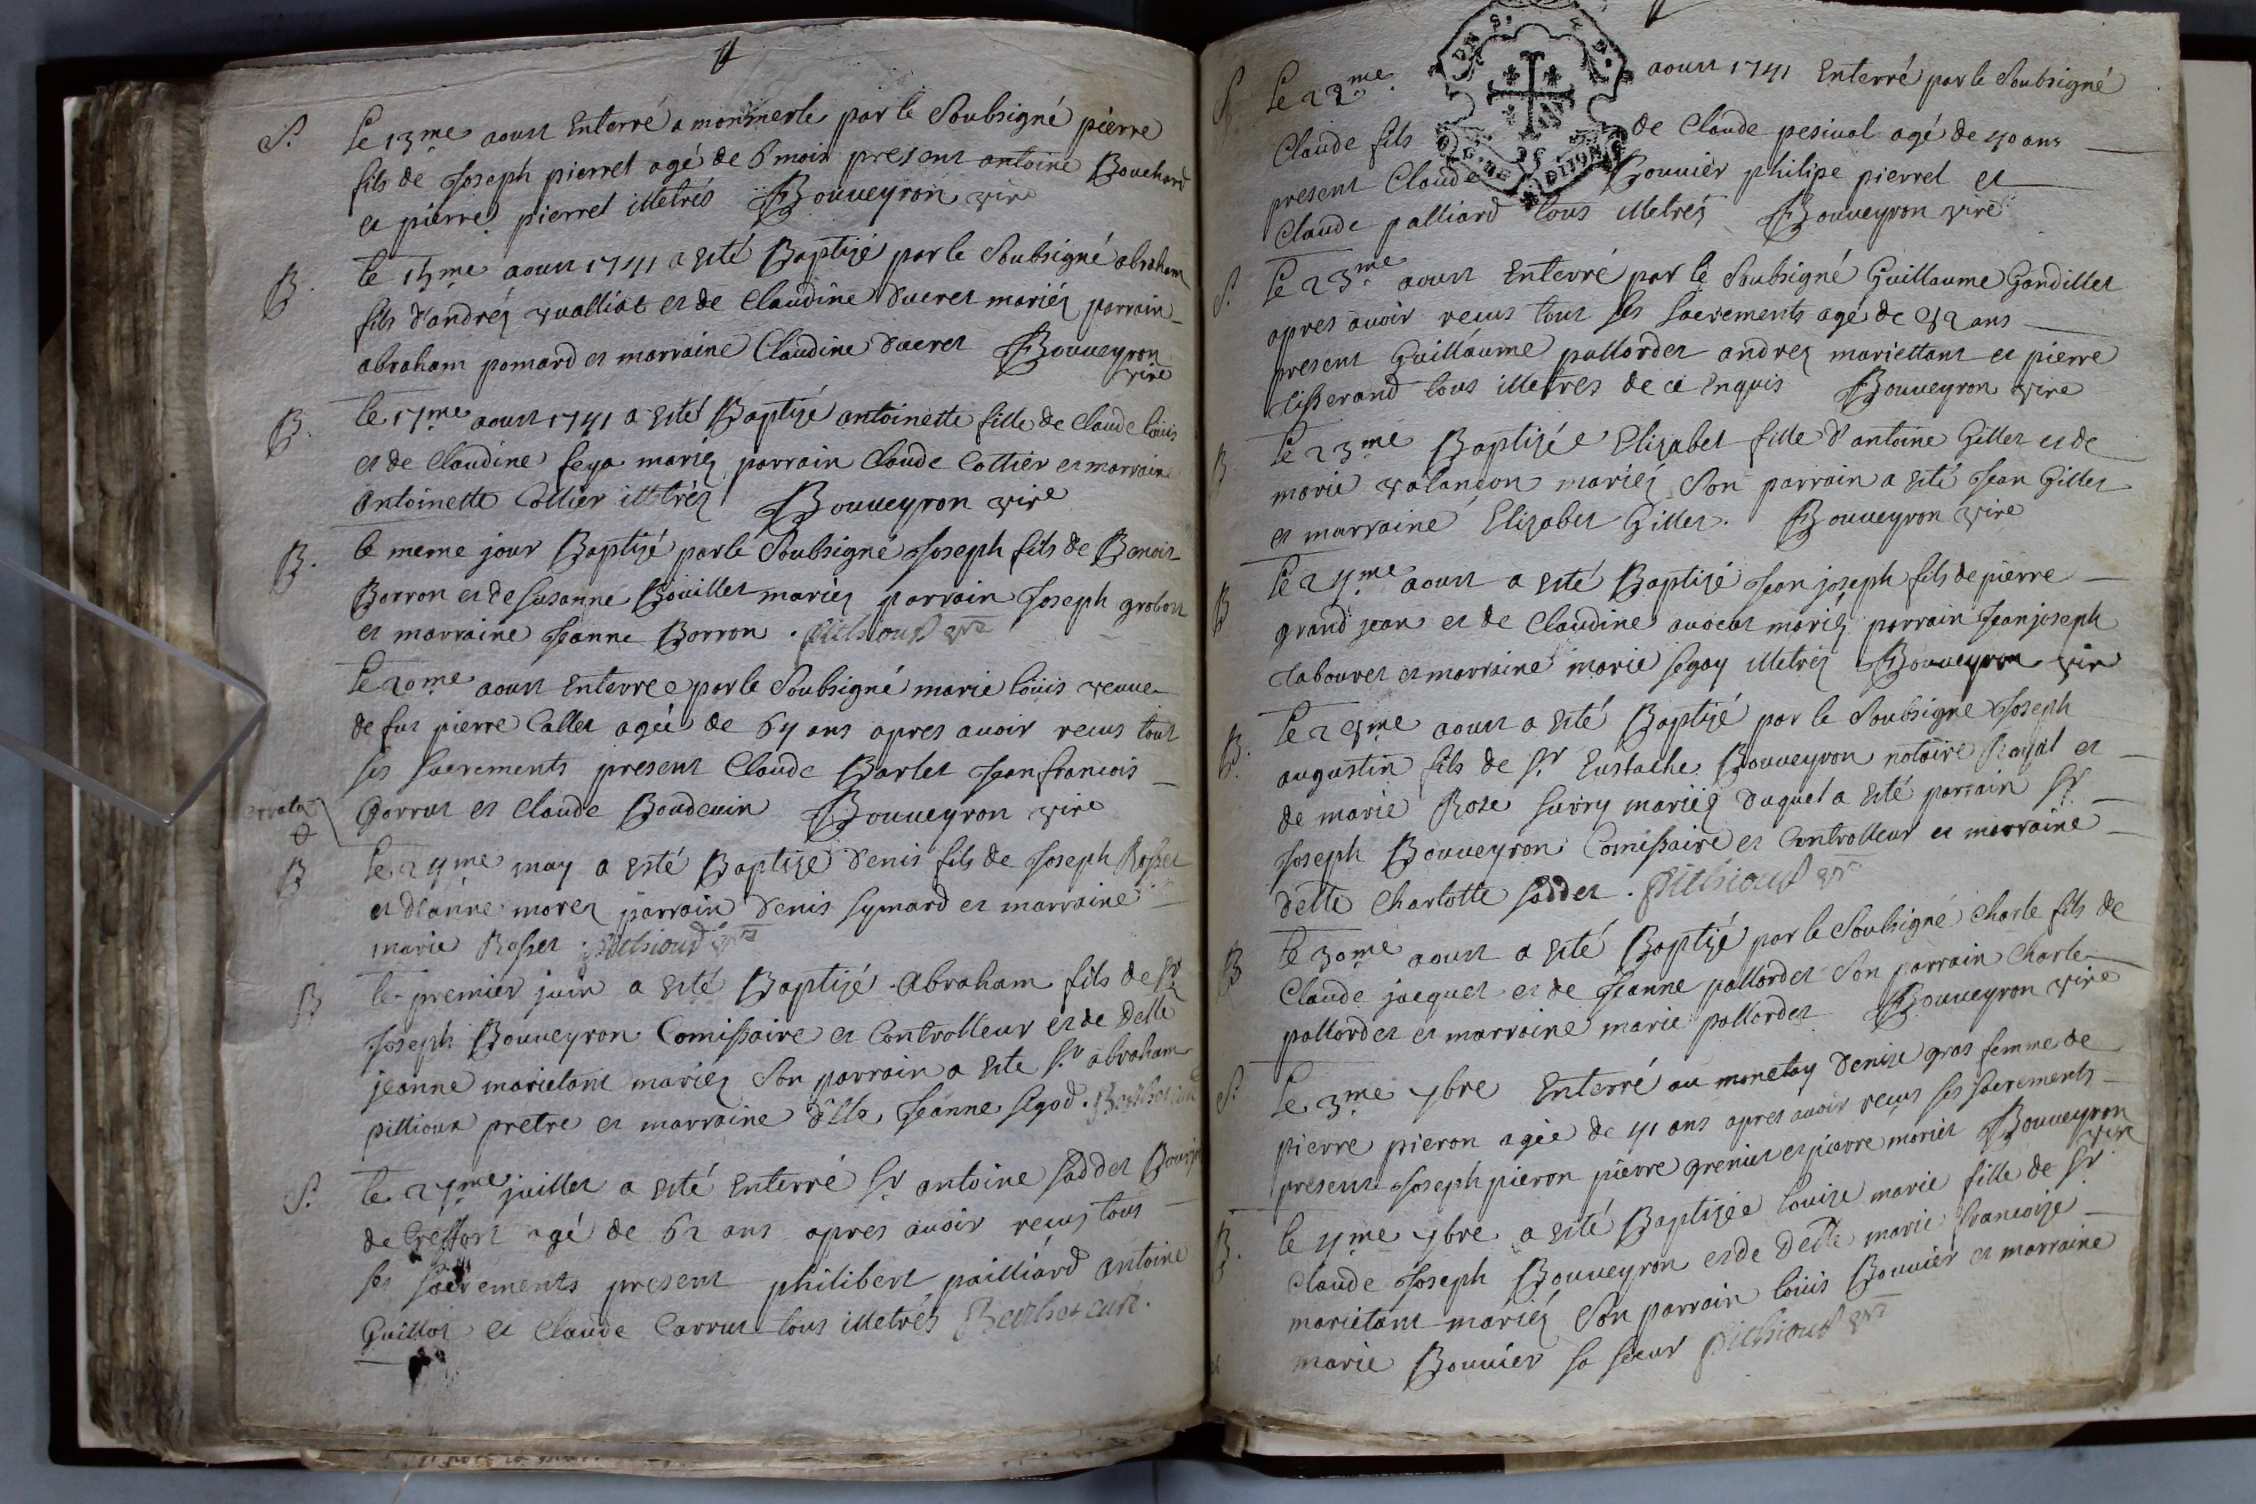 S. Le 13me aoust Enterré a monmerle par le Soubsigné pierre
fils de Joseph pierret agé de 6 mois present antoine Bouchard
et pierre pierret illetrés Bouveyron vire
B. le 15me aoust 1741 a esté Baptizé par le Soubsigné abraham
fils d'andréz vualliat et de Claudine ducret mariéz parrain
abraham pomard et marraine Claudine ducret Bouveyron
vire
B. le 17me aoust 1741 a esté Baptizé antoinette fille de Claude loüis
et de Claudine feya mariéz parrain Claude Cottier et marraine
Antoinette Cottier illetréz Bouveyron vire
B. le meme jour Baptizé par le Soubsigné Joseph fils de Benoit
Borron et de Susanne Boüillet mariéz parrain Joseph grobost
et marraine Jeanne Borron.
Le 20me aoust Enterreé par le Soubsigné marie loüis veuve
de fut pierre Callet agée de 64 ans apres avoir recus tout
ses sacrements present Claude Barlet Jean francois
errata
Carrut et Claude Boudevin Bouveyron vire
B le 24me may a esté Baptizé Denis fils de Joseph Rosset
et d'anne morez parrain Denis symard et marraine
marie Rosset
B le premier juin a esté Baptizé Abraham fils de Sr
Joseph Bouveyron Comissaire et Controlleur et de Delle
jeanne marietant mariéz Son parrain a este Sr abraham
pillioux pretre et marraine dlle Jeanne
S. le 27me juillet a esté Enterré Sr antoine Sadder
de Treffort agé de 62 ans apres avoir recus tous
ses sacrements present philibert pailliard antoine
Guillot et Claude Carrut tous illetrés
S Le 22me aoust 1741 Enterré par le Soubsigné
Claude fils de Claude pesival agé de 40 ans
present Claude Bouvier philipe pierret et
Claude palliard tous illetréz Bouveyron vire
S. Le 23me aoust Enterré par le Soubsigné Guillaume Gandillet
apres avoir recus tout ses sacrements agé de 52 ans
present Guillaume pallordet andrez mariettant et pierre
tisserand tous illetres de ce Enquis Bouveyron vire
B Le 23me Baptizée Elizabet fille d'antoine Gillet et de
marie valançon mariéz Son parrain a esté Jean Gillet
et marraine Elizabet Gillet. Bouveyron vire
B Le 24me aoust a esté Baptizé Jean joseph fils de pierre
grand jean et de Claudine avocat mariéz parrain Jean joseph
tabouret et marraine marie segay illetréz Bouveyron vire
B. Le 25me aoust a esté Baptizé par le Soubsigné Joseph
augustin fils de Sr Eustache Bouveyron notaire Royal et
de marie Rose survy mariéz duquel a esté parrain Sr
Joseph Bouveyron Comissaire et Controlleur et marraine
delle Charlotte sadder.
B le 30me aoust a esté Baptizé par le Soubsigné Charle fils de
Claude jacquet et de Jeanne pallordet Son parrain Charle
pallordet et marraine marie pallordet Bouveyron vire
S Le 3me 7bre Enterré au monetay Denize gras femme de
pierre pieron agée de 41 ans apres avoir recus ses sacrements
present Joseph pieron pierre grenier et pierre morier Bouveyron
vire
B. le 4me 7bre a esté Baptizée louize marie fille de Sr
Claude Joseph Bouveyron et de Delle marie francoize
marietant mariéz Son parrain loüis Bouvier et marraine
marie Bouvier sa soeur